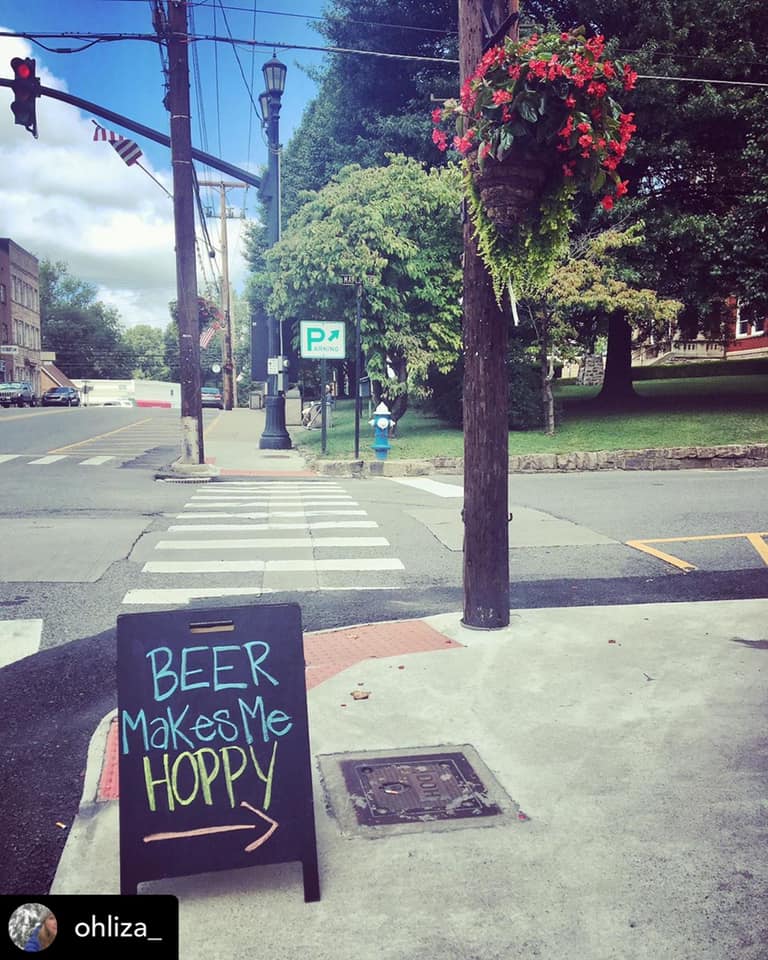 MAPLE
P
ARKING
BEER
Makes Me
HOPPY
ohliza_